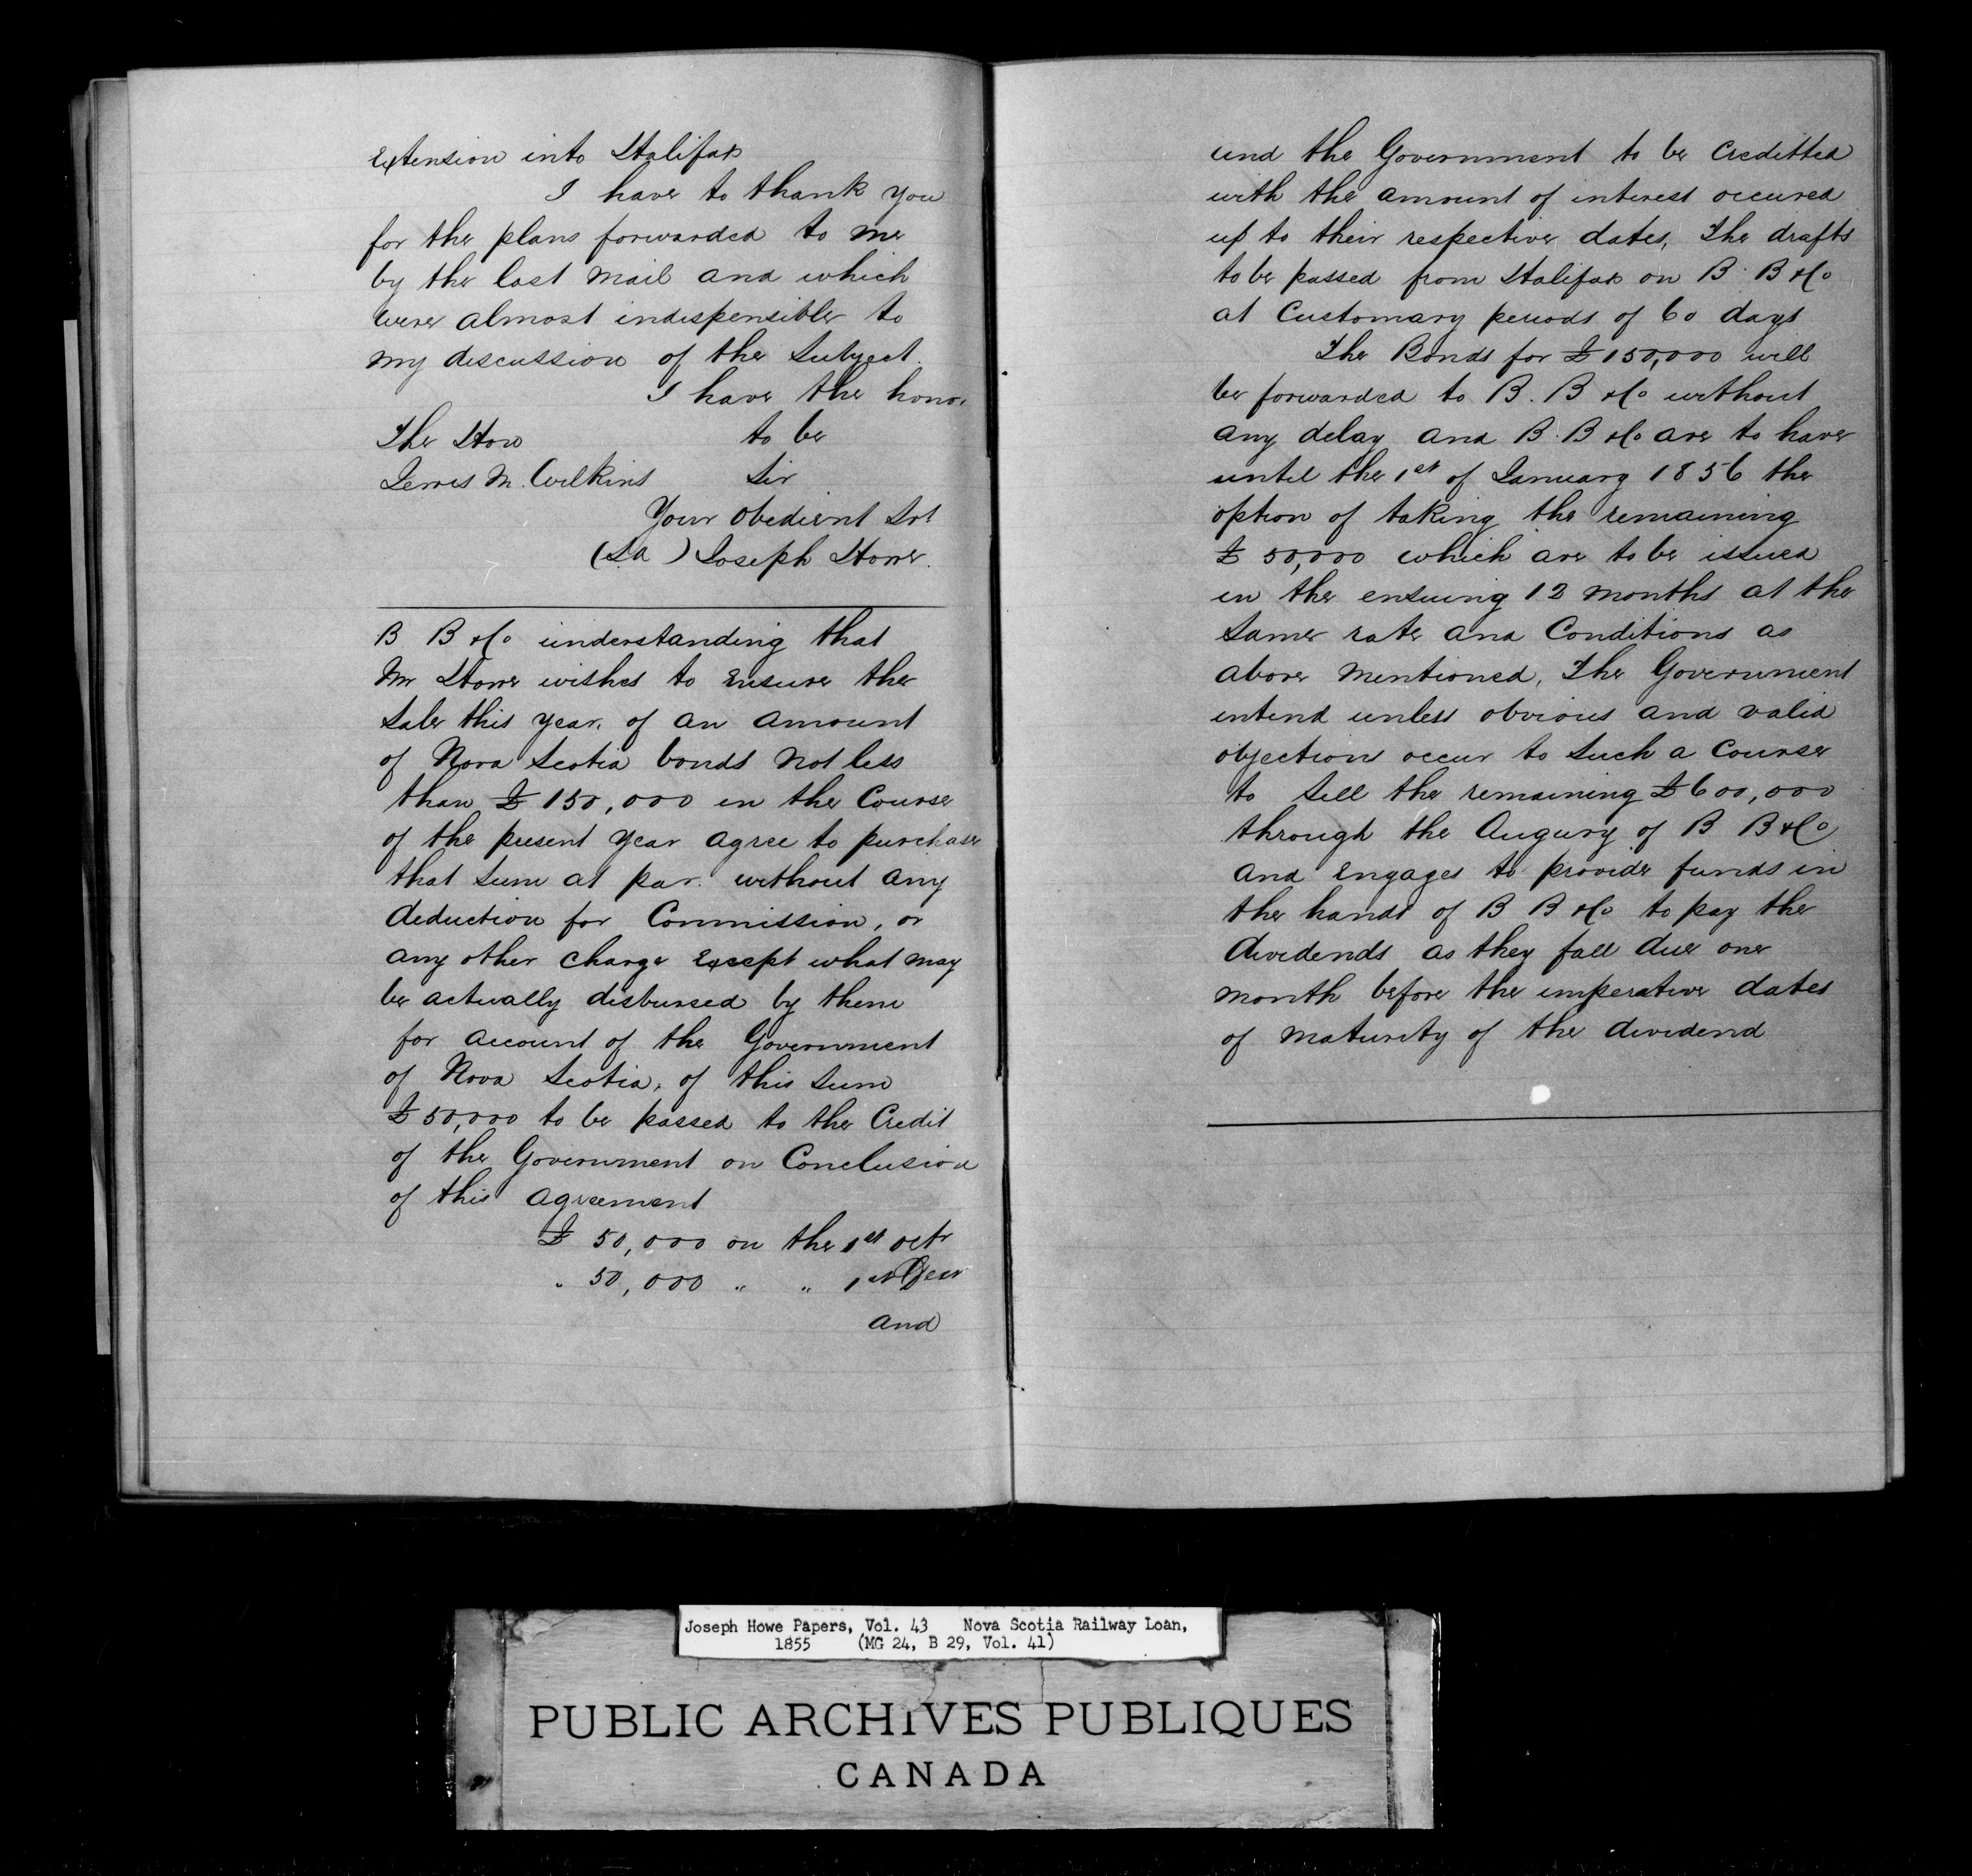 Extension into Halifax
I have to thank you
for the plans forwarded to me
by the last mail and which
were almost indispensible to
my discussion of the Subject.
I have the honor
The Hon to be
Lewis M. Wilkins Sir
Your Obedient Svt
(Sd) Joseph Howe.
B B & Co understanding that
Mr Howe wishes to Ensure the
Sale this year, of an amount
of Nova Scotia bonds not less
than £150,000 in the Course
of the present year agree to purchase
that Sum at par. without any
deduction for Commission, or
any other charge Except what may
be actually disbursed by them
for account of the Government
of Nova Scotia, of this Sum
£50,000 to be passed to the Credit
of the Government on Conclusion
of this agreement
£ 50,000 on the 1st Octr
" 50,000 " " 1st Decr
and
and the Government to be Creditted
with the amount of interest occured
up to their respective dates, The drafts
to be passed from Halifax on B. B & Co
at Customary periods of 60 days
The Bonds for £150,000 will
be forwarded to B. B & Co without
any delay and B. B & Co are to have
until the 1st of January 1856 the
option of taking the remaining
£50,000 which are to be issued
in the ensuing 12 months at the
Same rate and Conditions as
above mentioned, The Government
intend unless obvious and valid
objections occur to Such a Course
to Sell the remaining £600,000
through the Augury of B B & Co
and Engages to provide funds in
the hands of B B & Co to pay the
dividends as they fall due one
month before the imperative dates
of maturity of the dividend
Joseph Howe Papers, Vol. 43 Nova Scotia Railway Loan,
1855 (MG 24, B 29, Vol. 41)
PUBLIC ARCHIVES PUBLIQUES
CANADA